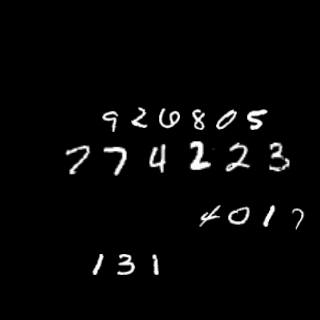 926805
774223
4017
131